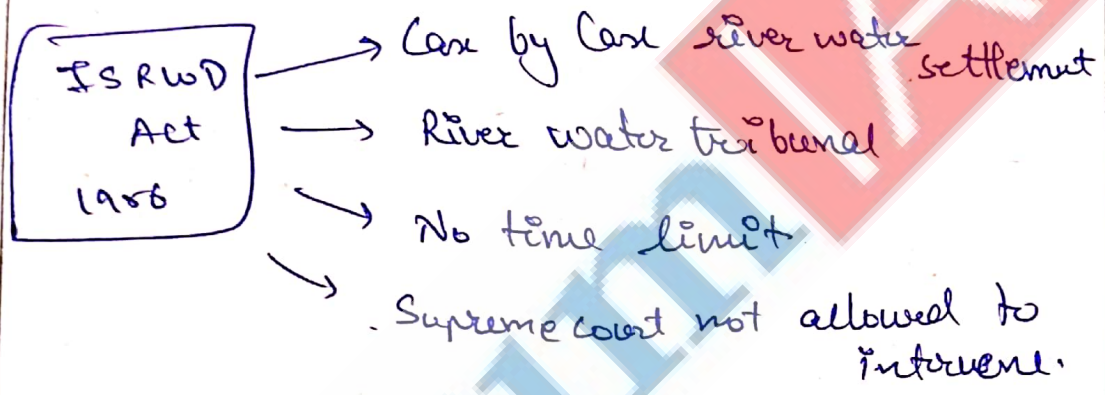 ISRWD
Act
1956
Case by Case river water settlement
River water tribunal
No time limit
. Supreme court not allowed to
intervene.